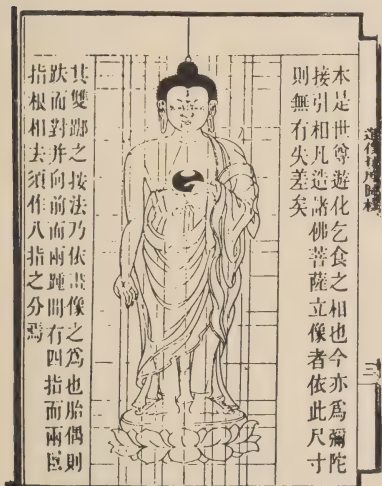 本是世尊遊化乞食之相也今亦為彌陀
接引相凡造諸佛菩薩立像者依此尺寸
則無有失差矣
其雙跡之接法乃依畫像之為也胎偶則
趺而對并向前而兩踵間有四指而兩巨
指根相去須作八指之分焉
三